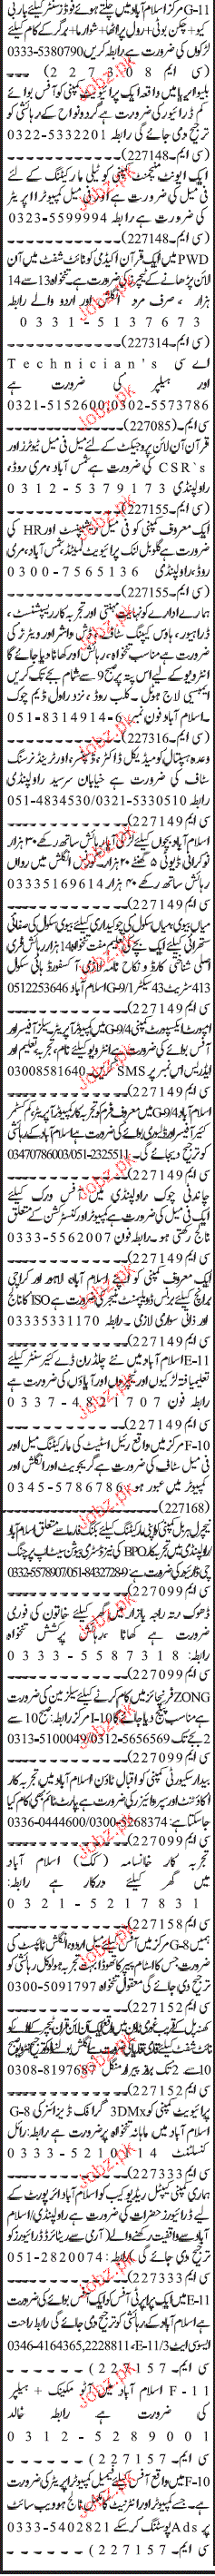 G-11 مرکز اسلام آباد میں چلتے ہوئے فوڈ سنٹر کیلئے باربی
کیو + چکن بوٹی + رول پراٹھا + شوارما + برگر کے کام کیلئے
لڑکوں کی ضرورت ہے رابطہ کریں 0333-5380790
(سی ایم 227308)
بلیو ایریا میں واقعہ ایک پرائیویٹ کمپنی کو آفس بوائے
کم ڈرائیور کی ضرورت ہے گردونواح کے رہائشی کو
ترجیح دی جائے گی رابطہ 0322-5332201
(سی ایم۔227148)
ایک ایونٹ مینجمنٹ کمپنی کو ٹیلی مارکیٹنگ کے لئے
کی ضرورت ہے رابطہ 0323-5599994
(سی ایم۔227148)
PWD میں ایک قرآن اکیڈمی کو نائٹ شفٹ میں آن
لائن پڑھانے کے ٹیچرز کی ضرورت ہے۔ تنخواہ 13 سے 14
ہزار، صرف مرد انگلش اور اردو والے رابطہ
0331-5137673
(سی ایم۔227314)
اے سی Technician's
اور ہیلپر کی ضرورت ہے
0321-5152600,0302-5573786
(سی ایم۔227085)
قرآن آن لائن پروجیکٹ کے لئے میل فی میل ٹیوٹرز اور
CSR's کی ضرورت ہے شمس آباد، مری روڈ،
راولپنڈی 0312-5379173
(سی ایم۔227155)
ایک معروف کمپنی کو فی میل ریسپشنسٹ اور HR کی
ضرورت ہے گلوبل لنک پرائیویٹ لمیٹڈ شمس آباد، مری
روڈ، راولپنڈی 0300-7565136
(سی ایم۔227155)
ہمارے ادارے کو نہایت محنتی اور تجربہ کار ریسپشنسٹ،
ڈرائیور، ہاؤس کیپنگ سٹاف، ڈش واشر اور ویٹرز کی
ضرورت ہے مناسب تنخواہ، رہائش اور کھانا دیا جائے گا
انٹرویو کے لیے اس پتہ پر صبح 9 سے شام 5 بجے تک کریں
ایمبیسی لاج ہوٹل۔ کلب روڈ، نزد راول ڈیم چوک
اسلام آباد فون نمبر 6-8314914-051
(سی ایم۔227316)
وعدہ ہسپتال کو میڈیکل ڈاکٹر، ڈسپنسر، اور ٹرینڈ نرسنگ
سٹاف کی ضرورت ہے خیابان سرسید راولپنڈی
رابطہ 0321-5330510/051-4834530
سی ایم 227149
اسلام آباد بچوں کیلئے لڑکی آیا رہائش ساتھ رکھے 30 ہزار
نوکرانی ڈیوٹی 5 گھنٹے 20 ہزار، ٹیچر انگلش میں رواں
رہائش ساتھ رکھے 40 ہزار 03335169614
سی ایم 227149
میاں بیوی میاں سکول کی چوکیداری کیلئے بیوی سکول کی صفائی
ستھرائی کیلئے ایک بچے کی تعلیم مفت تنخواہ 14 ہزار رہائش فری
اصلی شناختی کارڈ و نکاح نامہ لازمی: آکسفورڈ ہائی سکول
413 سٹریٹ 43 سیکٹر G-9/1 اسلام آباد 0512253646
سی ایم 227149
امپورٹ ایکسپورٹ کمپنی G-9/4 میں کمپیوٹر آپریٹر، سیلز آفیسر اور
آفس بوائے کی ضرورت ہے انٹرویو کیلئے نام، تجربہ، تعلیم اور
ایڈریس اس نمبر پر SMS کریں۔ 03008581640
سی ایم 227149
اسلام آباد G-9/4 میں معروف فرم کو تجربہ کار کمپیوٹر آپریٹر، کسٹمر
کیئر آفیسر اور ڈلیوری بوائے کی ضرورت ہے اسلام آباد کے رہائشی
کو ترجیح دیجائے گی۔ 03470786003/051-2325511
سی ایم 227149
چاندنی چوک راولپنڈی میں آفس ورک کیلئے
ایک فی میل کی ضرورت ہے کمپیوٹر اور کنسٹرکشن کے متعلق
نالج رکھتی ہو۔ رابطہ فون 0333-5562007
سی ایم 227149
ایک معروف کمپنی کو اپنے اسلام آباد، لاہور اور کراچی
برانچ کیلئے بزنس ڈویلپمنٹ مینیجر کی ضرورت ہے ISO کا نالج
اور ذاتی سواری لازمی۔ رابطہ 03335331170
سی ایم 227149
E-11 اسلام آباد میں نئے چلڈرن ڈے کیئر سنٹر کیلئے
تعلیمیافتہ لڑکیوں اور ٹیچروں اور آیاؤں کی ضرورت ہے
رابطہ فون 0337-4821707
سی ایم 227149
F-10 مرکز میں واقع رئیل اسٹیٹ کی مارکیٹنگ میل اور
فی میل سٹاف کی ضرورت ہے گریجویٹ اور انگلش اور
کمپیوٹر میں عبور ہو 0345-5786786
(227168)
0332-5578907/051-8432728-9
سی ایم 227099
ڈھوک رتہ راجہ بازار میں گھر کیلئے خاتون کی فوری
ضرورت ہے کھانا، رہائش، پرکشش تنخواہ
رابطہ: 0333-5587318
سی ایم 227099
ZONG فرنچائز میں کام کرنے کیلئے سیلزمین کی ضرورت
ہے مناسب پیکیج دیا جائے گا I-10 مرکز رابطہ: صبح 10 سے
2 بجے تک 0312-5656569/0313-5100049
سی ایم 227099
بیدار سکیورٹی کمپنی کو اقبال ٹاؤن اسلام آباد میں تجربہ کار
اکاؤنٹنٹ اور سپروائیزر کی ضرورت ہے پارٹ ٹائم بھی کام کیا
جاسکتا ہے: 0300-5268374/0336-0444600
سی ایم 227099
تجربہ کار خانسامہ (کک) اسلام آباد
میں گھر کیلئے درکار ہے رابطہ:
0321-5217831
سی ایم 227158
ہمیں G-8 مرکز میں آفس کیلئے میل اردو، انگلش ٹائپسٹ کی
ضرورت جس کا اسٹام پیپر کا تھوڑا بہت تجربہ ہو لوکل رہائشی کو
ترجیح دی جائے گی معقول تنخواہ 0300-5091797
سی ایم 227152
10 سے 2 تک بروز پیر، منگل 0308-8197687
سی ایم 227152
پرائیویٹ کمپنی کو 3DMx گرافک ڈیزائنر کی G-8
اسلام آباد میں ماہانہ تنخواہ پر ضرورت ہے رابطہ: رائل
کنسلٹنٹ 0333-5210114
سی ایم 227333
ہماری کمپنی کیپٹل ریڈیو کیب کو اسلام آباد ائیرپورٹ کے
لیے ڈرائیورز حضرات کی ضرورت ہے راولپنڈی/اسلام
آباد سے واقفیت رکھنے والے (آرمی سے ریٹائرڈ ڈرائیورز کو
ترجیح دی جائے گی) رابطہ: 051-2820074
سی ایم 227333
E-11 میں ایک پراپرٹی آفس کو ایک آفس بوائے کی ضرورت
ہے اسلام آباد کے رہائشی کو ترجیح دی جائے گی رابطہ راحت
ایسوسی ایٹ E-11/3، 0346-4164365,2228811
(سی ایم۔227157)
F-11 اسلام آباد میں آٹو مکینک + ہیلپر
کی ضرورت ہے رابطہ خالد
0312-5289001
(سی ایم۔227157)
F-10 میں واقع آفس کیلئے فیمیل کمپیوٹر آپریٹر کی ضرورت
ہے۔ جسے کمپیوٹر اور انٹرنیٹ کا مکمل نالج ہو ویب سائیٹ
پر Ads پوسٹنگ کر سکے 0333-5402821
(سی ایم۔227157)